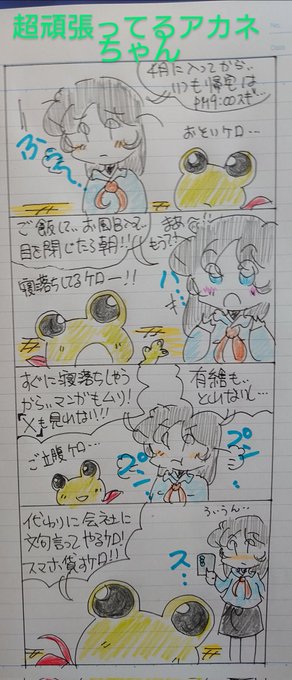 超頑張ってるアカネ
ちゃん
4月に入ってから、
いつも帰宅は
PM9:00スギ…
おそいケロ…
ぶぅ〜ん
まあ〜!!
もう!!
ご飯して、お風呂入って、
目を閉じたら朝!!
寝落ちしてるケロー!!
すぐに寝落ちしちゃう
からマンガもムリ!
「X」も見れない!!
有給も、
とれないし…
プン
プン
ご立腹ケロ…
うぃうん…
代わりに会社に
文句言ってやるケロ!!
スマホ貸すケロ!
ス…